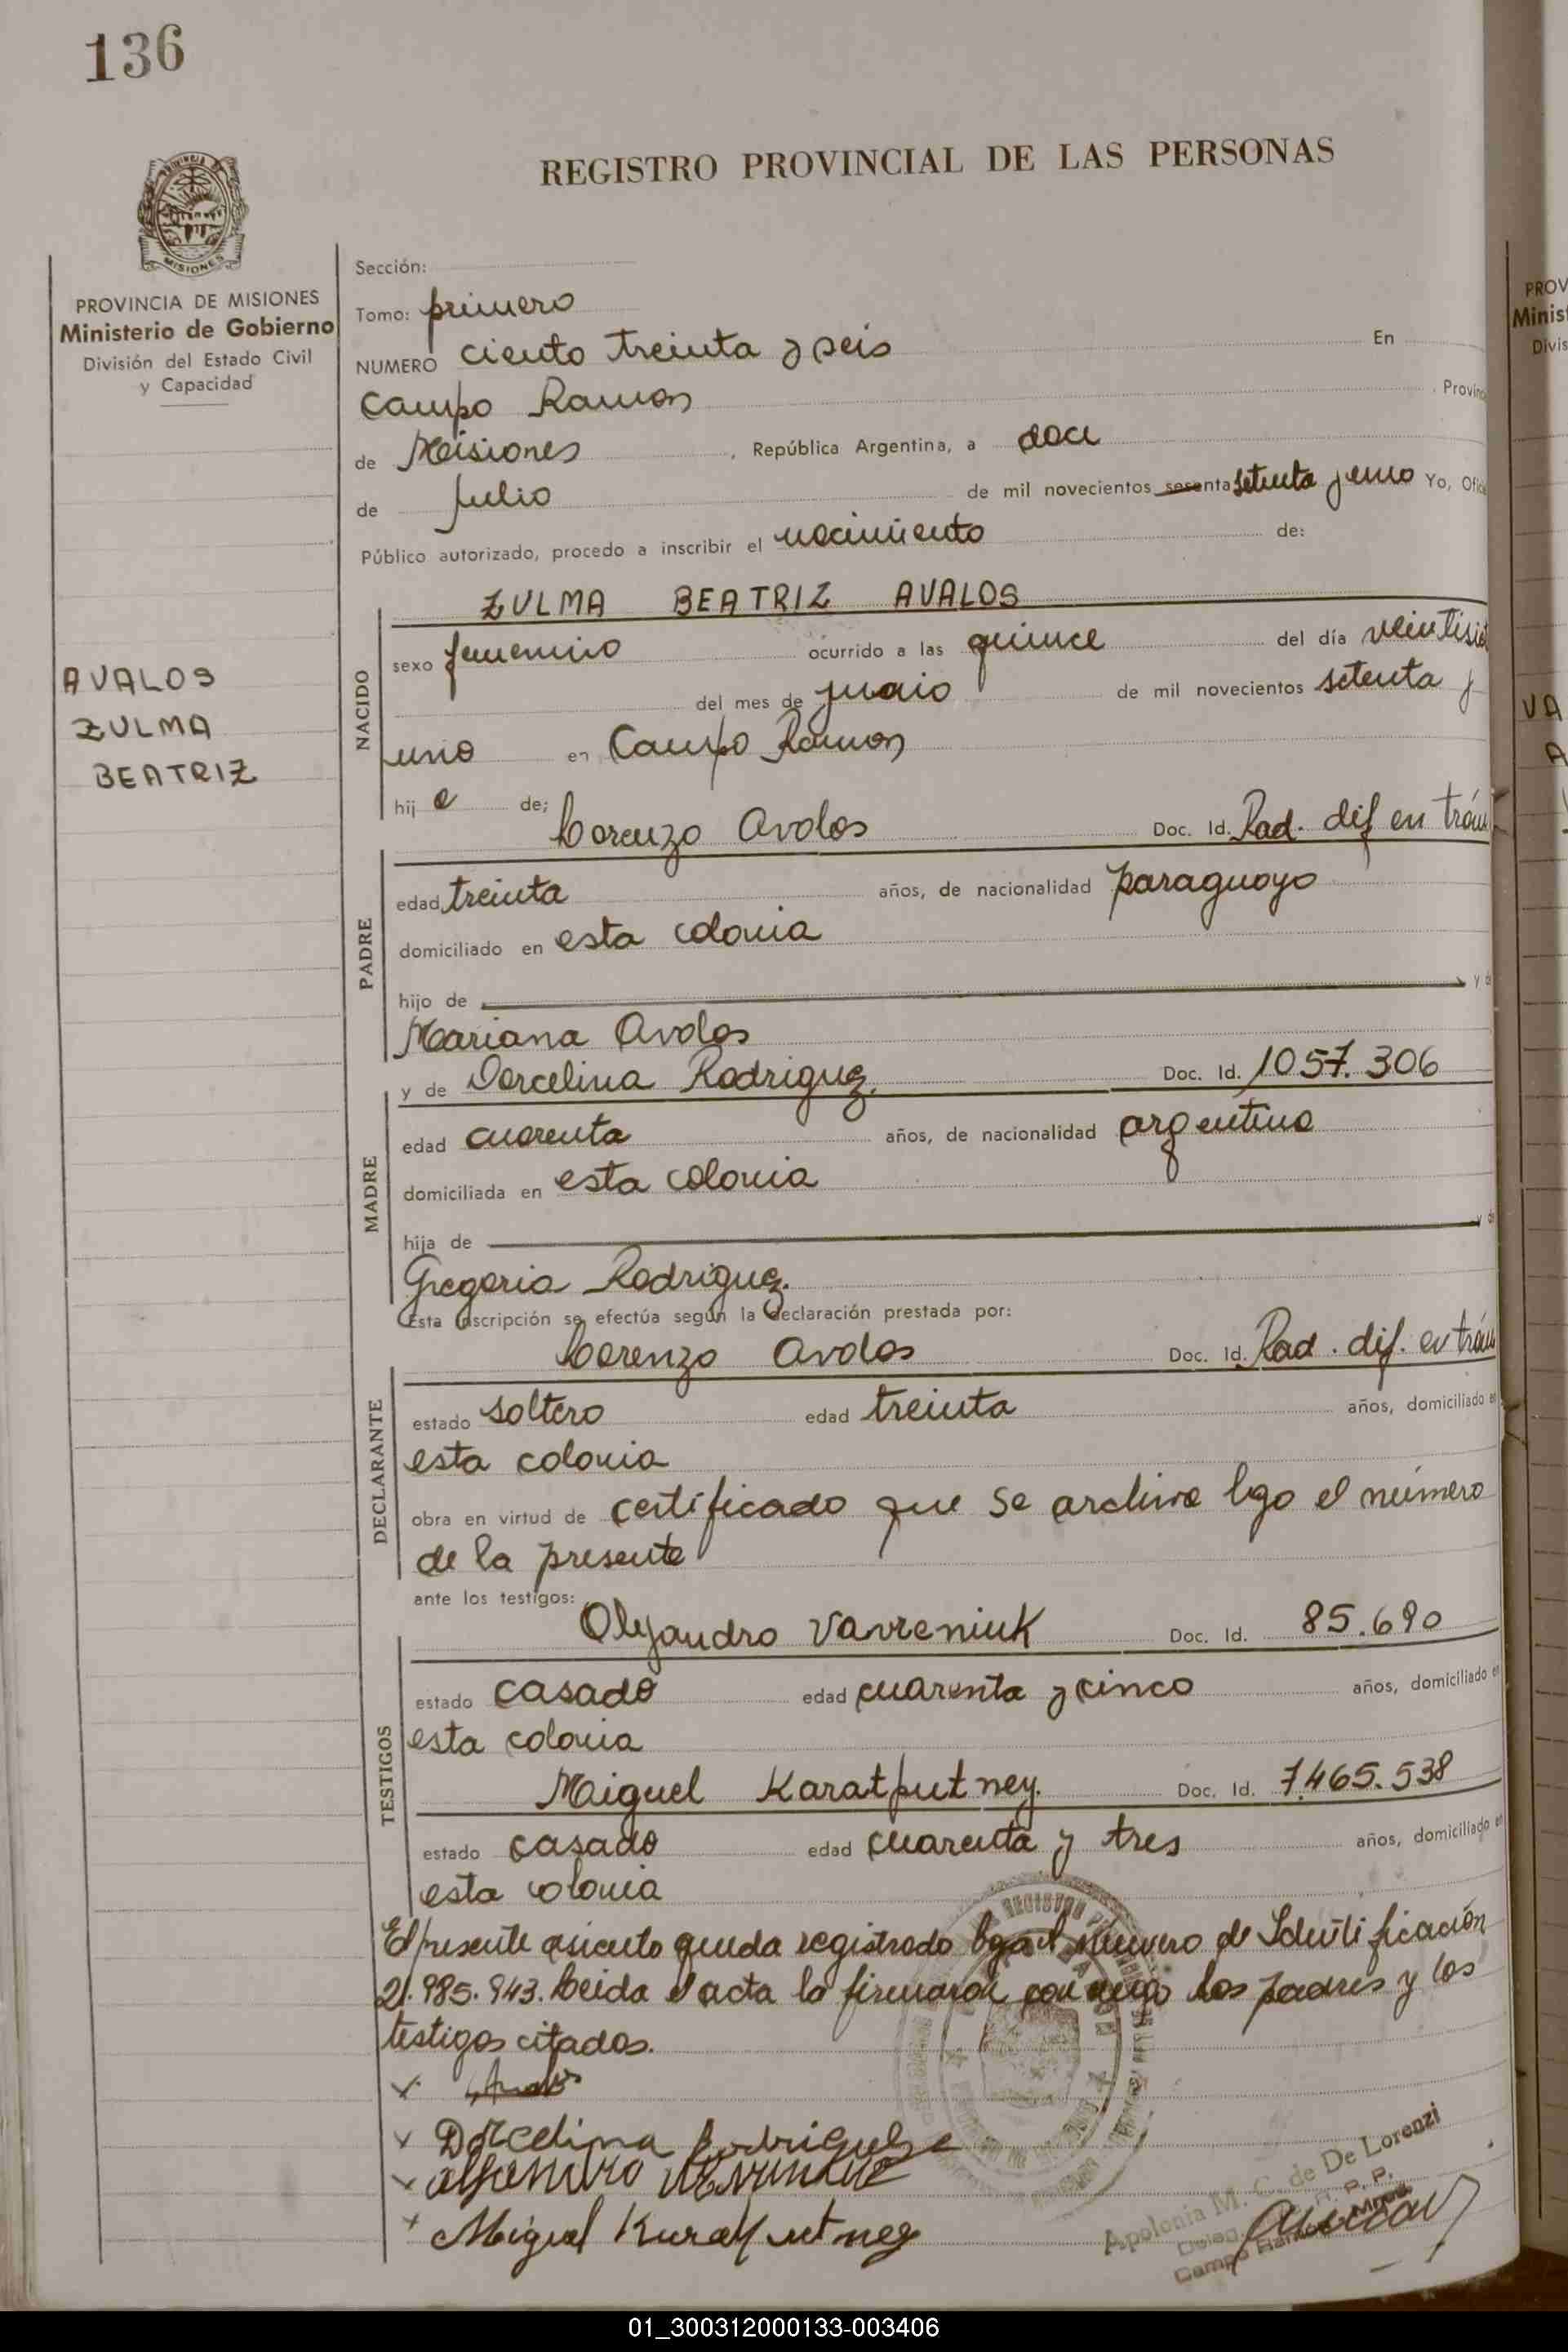 136
REGISTRO PROVINCIAL DE LAS PERSONAS
PROVINCIA
MISIONES
PROVINCIA DE MISIONES
Ministerio de Gobierno
División del Estado Civil
y Capacidad
AVALOS
ZULMA
BEATRIZ
Sección:
Tomo: primero
NUMERO ciento treinta y seis En
Campo Ramon Provinc
de Misiones , República Argentina, a doce
de Julio de mil novecientos sesenta setenta y uno Yo, Ofic
Público autorizado, procedo a inscribir el nacimiento de:
ZULMA BEATRIZ AVALOS
NACIDO
sexo femenino ocurrido a las quince del día veintisie
del mes de junio de mil novecientos setenta y
uno en Campo Ramon
hij a de; Lorenzo Avalos Doc. Id. Rad. dif en trám
PADRE
edad treinta años, de nacionalidad paraguayo
domiciliado en esta colonia
hijo de y d
Mariana Avalos
y de Dorcelina Rodriguez. Doc. Id. 1057.306
MADRE
edad cuarenta años, de nacionalidad argentina
domiciliada en esta colonia
hija de y d
Gregoria Rodriguez.
Esta inscripción se efectúa según la declaración prestada por:
Lorenzo Avalos Doc. Id. Rad. dif. en trám
DECLARANTE
estado soltero edad treinta años, domiciliado en
esta colonia
obra en virtud de certificado que se archiva bajo el número
de la presente
ante los testigos:
Alejandro Vavreniuk Doc. Id. 85.690
TESTIGOS
estado casado edad cuarenta y cinco años, domiciliado en
esta colonia
Miguel Karatputney. Doc. Id. 7.465.538
estado casado edad cuarenta y tres años, domiciliado en
esta colonia
El presente asiento queda registrado bajo el número de Identificación
21.985.943. Leida el acta la firmaron conmigo los padres y los
testigos citados.
Dorcelina Rodriguez
Miguel
Apolonia M. C. de De Lorenzi
R. P. P.
Campo Ramon - Mnes.
PROV
Minist
Divis
VA
A
01_300312000133-003406